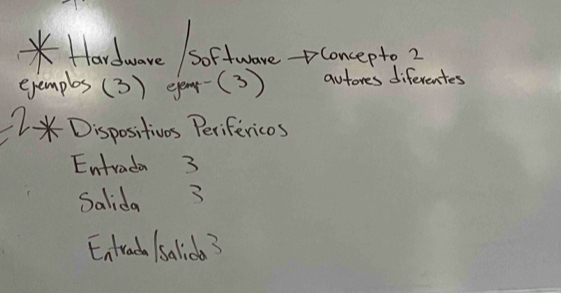 * Hardware / Software → Concepto 2
ejemplos (3) ejemp- (3) autores diferentes
2 * Dispositivos Periféricos
Entrada 3
Salida 3
Entrada/salida 3